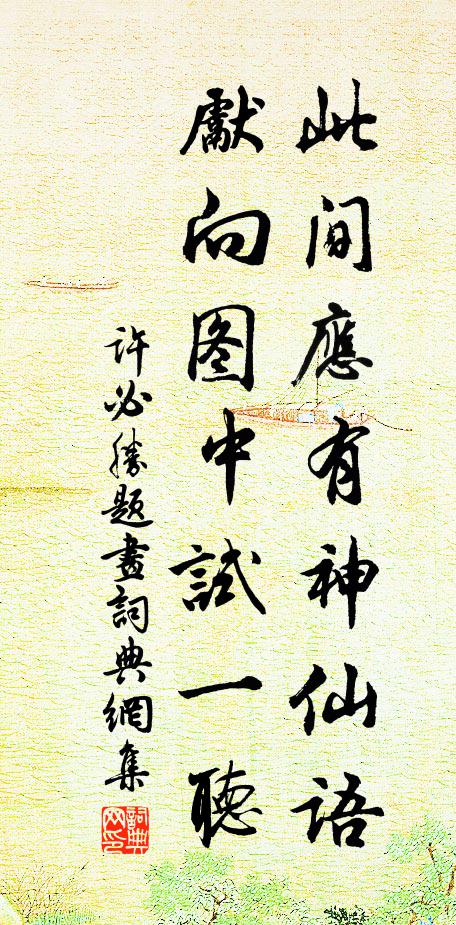 此间應有神仙語
獻向图中試一聽
许必勝題畫詞典網集
詞典網印